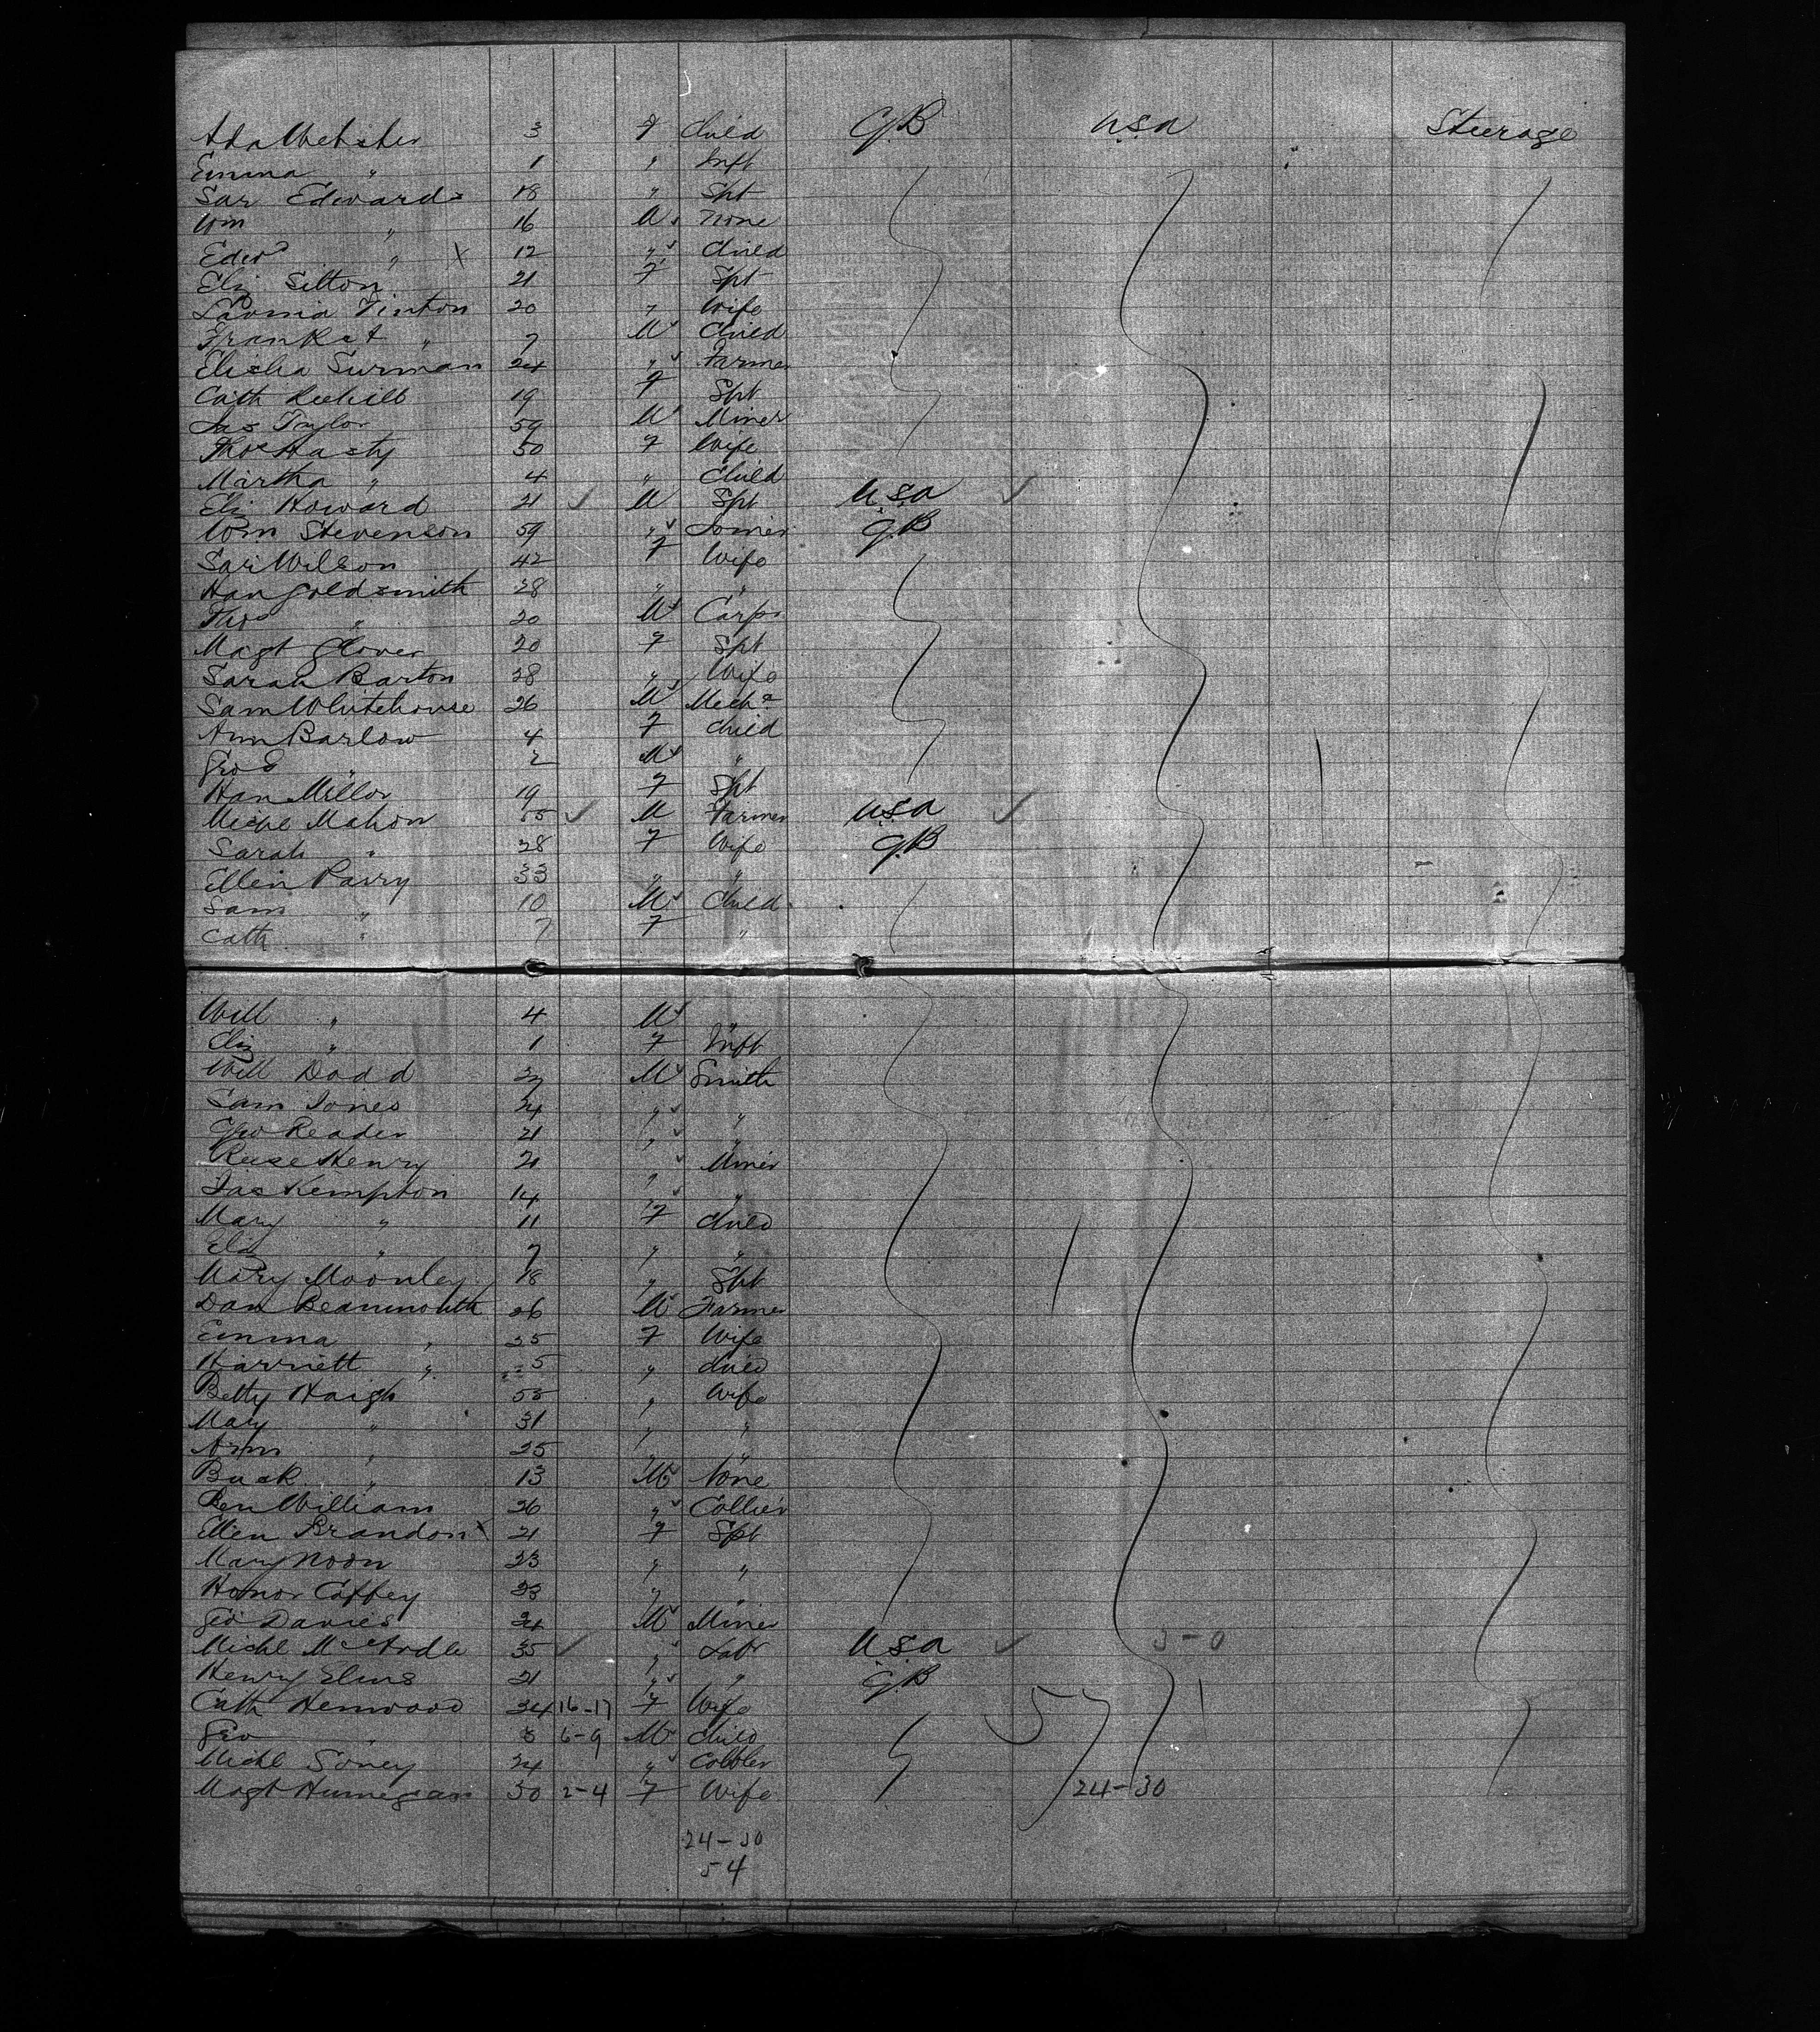 Ada Webster 3 F Child G.B U.S.A Steerage
Emma " 1 " Inft
Sar Edwards 18 " Spt
Wm " 16 M None
Edwd " X 12 " Child
Eliz Sitton 21 F Spt
Lavinia Vinton 20 " Wife
" 7 M Child
Elisha Surman 24 " Farmer
Cath 19 F Spt
Jas Taylor 59 M Miner
Hasty 50 F Wife
Martha " 4 " Child
Eliz Howard 21 ✓ M Spt U.S.A ✓
Wm Stevenson 59 " G.B
Sar Wilson 42 F Wife
Han Goldsmith 28 " "
Thos " 20 M Carpr
Magt Glover 20 F Spt
Sarah Barton 28 " Wife
Sam Whitehouse 26 M Mech
Ann Barlow 4 F Child
Geo " 2 M "
Han Millor 19 F Spt
Michl Mahon 55 ✓ M Farmer U.S.A ✓
Sarah " 28 F Wife G.B
Ellen Parry 33 " "
Sam " 10 M Child
Cath " 7 F "
Will " 4 M "
Eliz " 1 F Inft
Will Dodd M Smith
Sam Jones 24 " "
Geo Reader 21 " "
Reese Henry 21 " Miner
Jas Kempton 14 " "
Mary " 11 F Child
Eliz " 7 " "
Mary Moonley 18 " Spt
Dan Beaumonth 26 M Farmer
Emma " 25 F Wife
Harriett " 5 " Child
Betty Haigh 55 " Wife
Mary " 31 " "
Ann " 25 " "
" 13 M None
Ben William 26 " Collier
Ellen Brandon X 21 F Spt
Mary Noon 23 " "
Honor Caffey 23 " "
Geo Davies 24 M Miner
Michl McArdle 35 ✓ " Labr U.S.A ✓ 3-0
Henry Elms 21 " " G.B
Cath Henwood 24 16-17 F Wife 57
Geo " 6-9 M Child
Michl Soney 24 " Cobbler
Magt Hunegan 30 2-4 F Wife 24-30
24-30
54